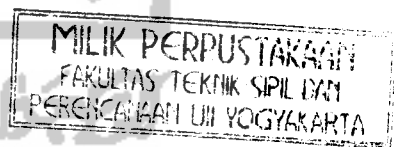 MILIK PERPUSTAKAAN
FAKULTAS TEKNIK SIPIL DAN
PERENCANAAN UII YOGYAKARTA